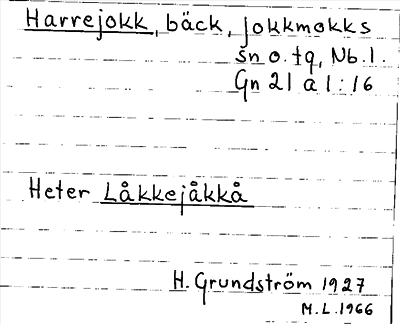 Harrejokk, bäck, Jokkmokks
sn o. tg, Nb. l.
Gn 21 a 1:16
Heter Låkkejåkkå
H. Grundström 1927
M.L. 1966